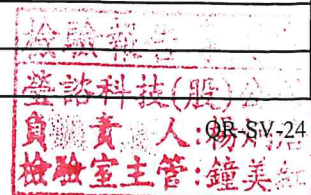 檢驗報告
瑩諮科技(股)公
負責人:楊
QR-SV-24
檢驗室主管:鐘美